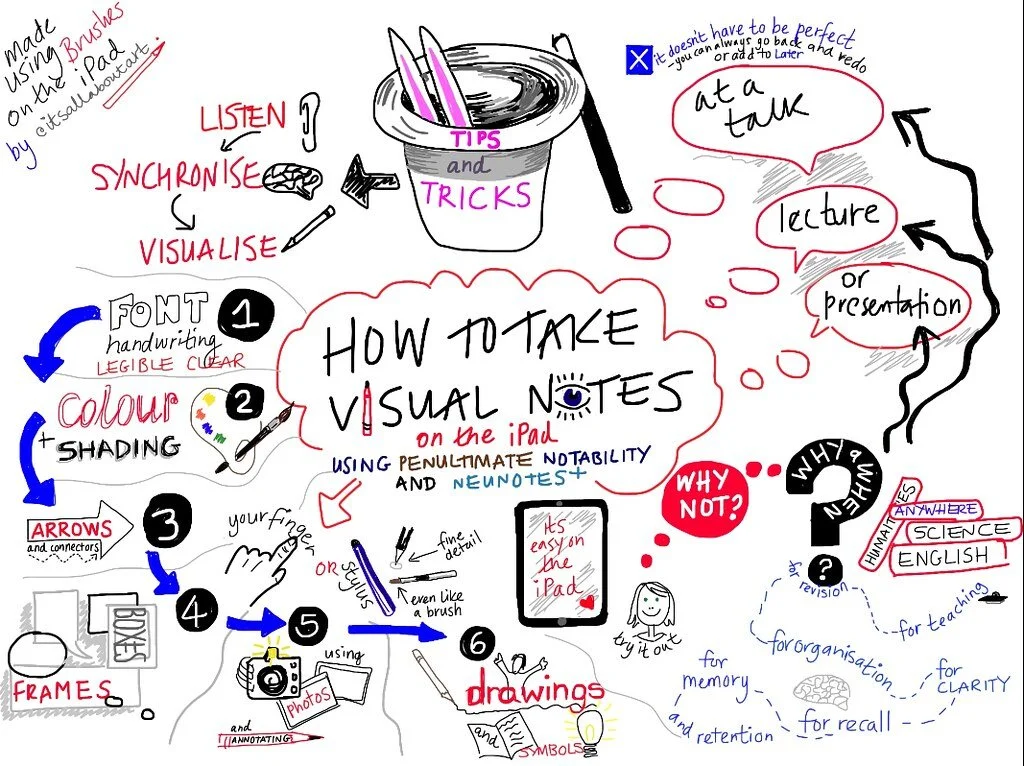 made
using Brushes
on the iPad
by @itsallaboutart
it doesn't have to be perfect
- you can always go back and redo
or add to Later
at a
talk
lecture
or
presentation
LISTEN
SYNCHRONISE
VISUALISE
TIPS
and
TRICKS
HOW TO TAKE
VISUAL NOTES
on the iPad
USING PENULTIMATE NOTABILITY
AND NEUNOTES+
1
FONT
handwriting
LEGIBLE CLEAR
2
colour
+ SHADING
3
ARROWS
and connectors
4
BOXES
FRAMES
5
using
PHOTOS
and
ANNOTATING
6
drawings
and
SYMBOLS
your finger
OR
stylus
fine
detail
even like
a brush
It's
easy on
the
iPad
WHY
NOT?
try it out
WHY & WHEN
?
HUMANITIES
ANYWHERE
SCIENCE
ENGLISH
for
revision
for teaching
for organisation
for
CLARITY
for
memory
and retention
for recall